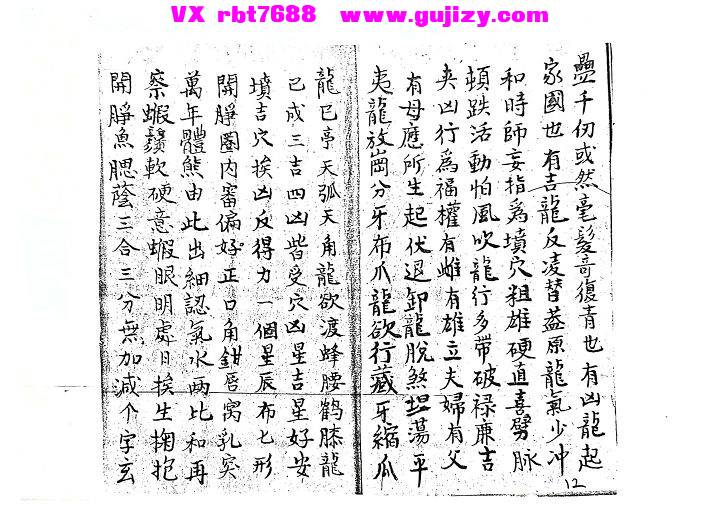 VX rbt7688 www.gujizy.com
疊千仞或然毫髮奇復青也有凶龍起
家國也有吉龍反凌替蓋原龍氣少冲
和時師妄指為墳穴粗雄硬直喜劈脉
頓跌活動怕風吹龍行多帶破禄廉吉
夹凶行為福權有雌有雄立夫婦有父
有母應所生起伏退卸龍脫煞坦蕩平
夷龍放崗分牙布爪龍欲行藏牙縮瓜
龍已亭天弧天角龍欲渡蜂腰鶴膝龍
已成三吉四凶皆受穴凶星吉星好安
墳吉穴挨凶反得力一個星辰布七形
開睜圈内審偏好正口角鉗唇窩乳突
萬年體態由此出細認氣水兩比和再
察蝦鬚軟硬意蝦眼明處目挨生掬抱
開睜魚腮蔭三合三分無加減个字玄
12